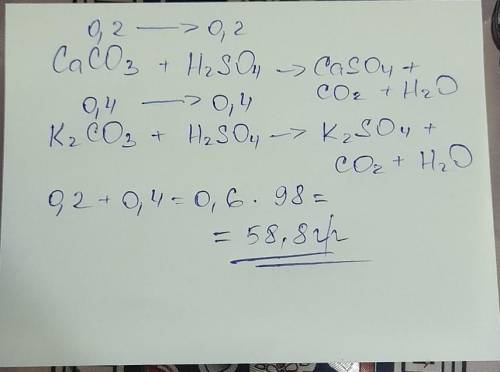 0,2 —> 0,2
CaCO3 + H2SO4 —> CaSO4 +
CO2 + H2O
0,4 —> 0,4
K2CO3 + H2SO4 —> K2SO4 +
CO2 + H2O
0,2 + 0,4 = 0,6 · 98 =
= 58,8